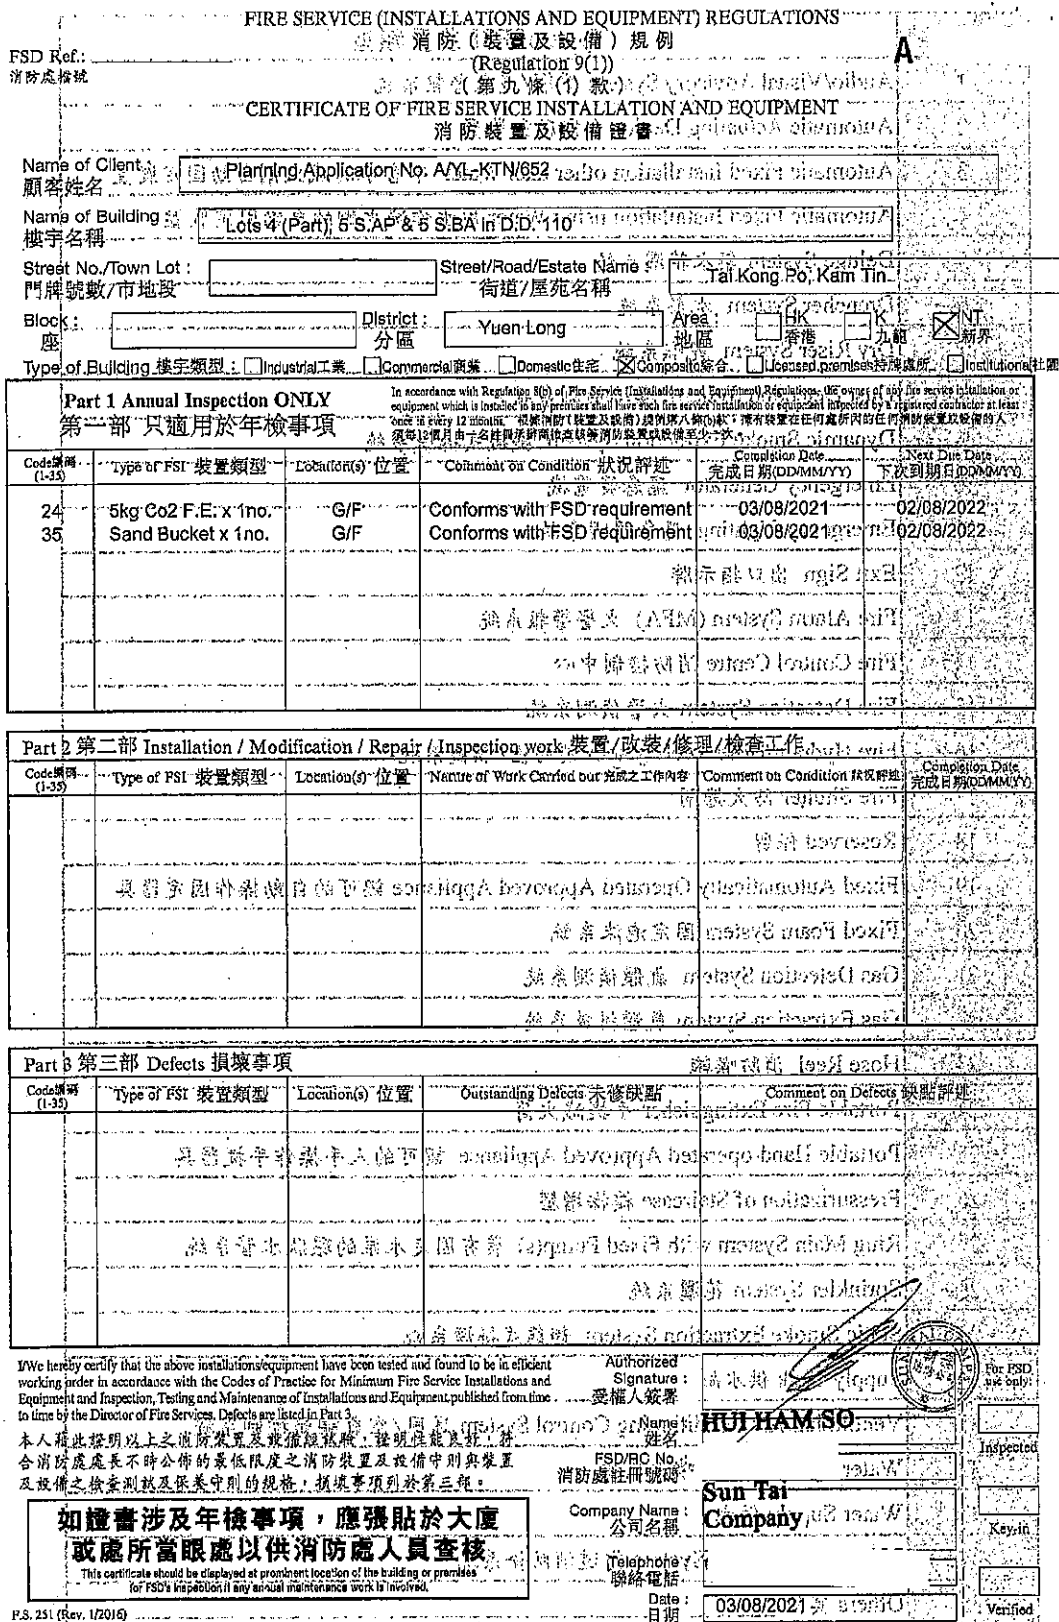 FIRE SERVICE (INSTALLATIONS AND EQUIPMENT) REGULATIONS
消防(裝置及設備)規例
FSD Ref.:
消防處檔號
(Regulation 9(1))
(第九條(1)款)
A
CERTIFICATE OF FIRE SERVICE INSTALLATION AND EQUIPMENT
消防裝置及設備證書
Name of Client :
顧客姓名
Planning Application No. A/YL-KTN/652
Name of Building :
樓宇名稱
Lots 4 (Part), 5 S.AP & 5 S.BA in D.D. 110
Street No./Town Lot :
門牌號數/市地段
Street/Road/Estate Name :
街道/屋苑名稱
Tai Kong Po, Kam Tin
Block :
座
District :
分區
Yuen Long
Area :
地區
HK
香港
K
九龍
NT
新界
Type of Building 樓宇類型 : Industrial工業 Commercial商業 Domestic住宅 Composite綜合 Licensed premises持牌處所 Institutional社團
Part 1 Annual Inspection ONLY
第一部 只適用於年檢事項
In accordance with Regulation 8(b) of Fire Service (Installations and Equipment) Regulations, the owner of any fire service installation or
equipment which is installed in any premises shall have such fire service installation or equipment inspected by a registered contractor at least
once in every 12 months. 根據消防(裝置及設備)規例第八條(b)款,擁有裝置在任何處所內的任何消防裝置或設備的人,
須每12個月由一名註冊承辦商檢查該等消防裝置或設備至少一次
Code編碼 (1-35) Type of FSI 裝置類型 Location(s) 位置 Comment on Condition 狀況評述 Completion Date 完成日期(DD/MM/YY) Next Due Date 下次到期日(DD/MM/YY)
24 5kg Co2 F.E. x 1no. G/F Conforms with FSD requirement 03/08/2021 02/08/2022
35 Sand Bucket x 1no. G/F Conforms with FSD requirement 03/08/2021 02/08/2022
Part 2 第二部 Installation / Modification / Repair / Inspection work 裝置/改裝/修理/檢查工作
Code編碼 (1-35) Type of FSI 裝置類型 Location(s) 位置 Nature of Work Carried out 完成之工作內容 Comment on Condition 狀況評述 Completion Date 完成日期(DD/MM/YY)
Part 3 第三部 Defects 損壞事項
Code編碼 (1-35) Type of FSI 裝置類型 Location(s) 位置 Outstanding Defects 未修缺點 Comment on Defects 缺點評述
I/We hereby certify that the above installations/equipment have been tested and found to be in efficient
working order in accordance with the Codes of Practice for Minimum Fire Service Installations and
Equipment and Inspection, Testing and Maintenance of Installations and Equipment published from time
to time by the Director of Fire Services, Defects are listed in Part 3.
本人藉此證明以上之消防裝置及設備經試驗,證明性能良好,符
合消防處處長不時公佈的最低限度之消防裝置及設備守則與裝置
及設備之檢查測試及保養守則的規格,損壞事項列於第三部。
如證書涉及年檢事項,應張貼於大廈
或處所當眼處以供消防處人員查核
This certificate should be displayed at prominent location of the building or premises
for FSD's inspection if any annual maintenance work is involved.
F.S. 251 (Rev. 1/2016)
Authorized
Signature :
受權人簽署
Name :
姓名
HUI HAM SO
FSD/RC No. :
消防處註冊號碼
Company Name :
公司名稱
Sun Tai
Company
Telephone :
聯絡電話
Date :
日期
03/08/2021
For FSD
use only:
Inspected
Key-in
Verified